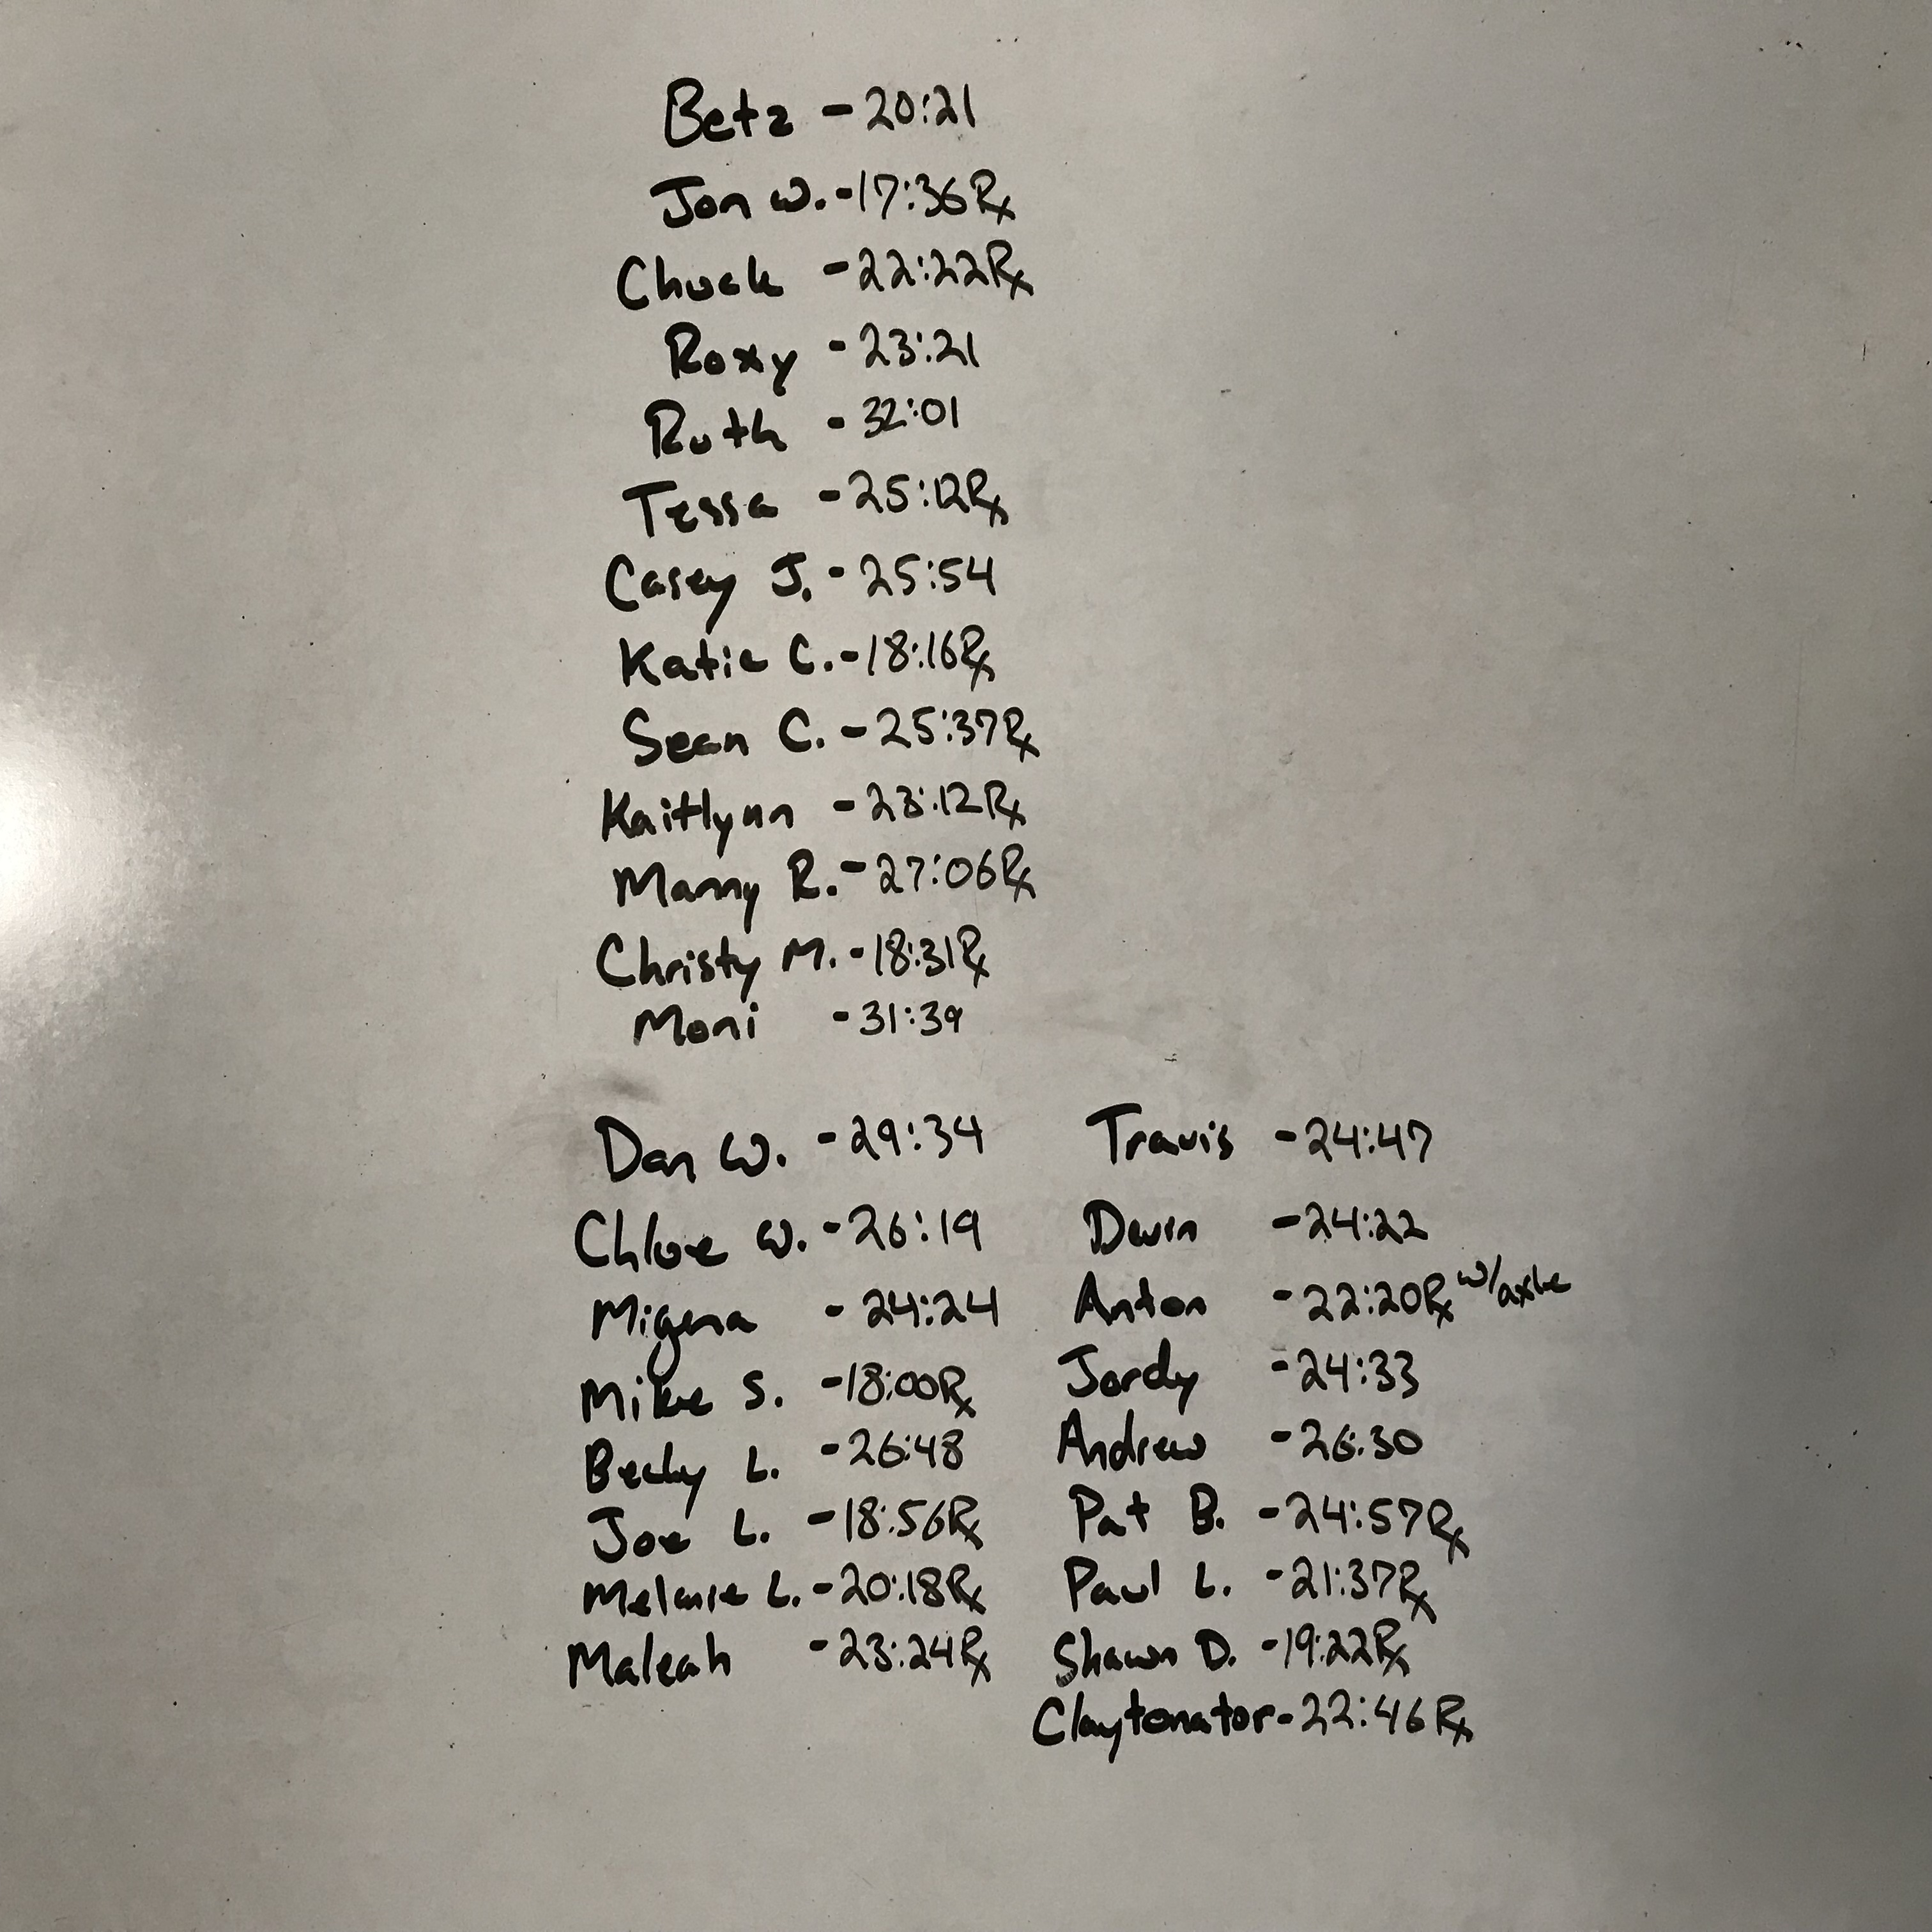 Betz - 20:21
Jon W. - 17:36 Rx
Chuck - 22:22 Rx
Roxy - 23:21
Ruth - 32:01
Tessa - 25:12 Rx
Casey J. - 25:54
Katie C. - 18:16 Rx
Sean C. - 25:37 Rx
Kaitlynn - 23:12 Rx
Manny R. - 27:06 Rx
Christy M. - 18:31 Rx
Moni - 31:39
Dan W. - 29:34
Chloe W. - 26:19
Migena - 24:24
Mike S. - 18:00 Rx
Becky L. - 26:48
Joe L. - 18:56 Rx
Melanie L. - 20:18 Rx
Maleah - 23:24 Rx
Travis - 24:47
Devin - 24:22
Anton - 22:20 Rx w/axle
Jordy - 24:33
Andrew - 26:30
Pat B. - 24:57 Rx
Paul L. - 21:37 Rx
Shawn D. - 19:22 Rx
Claytonator - 22:46 Rx